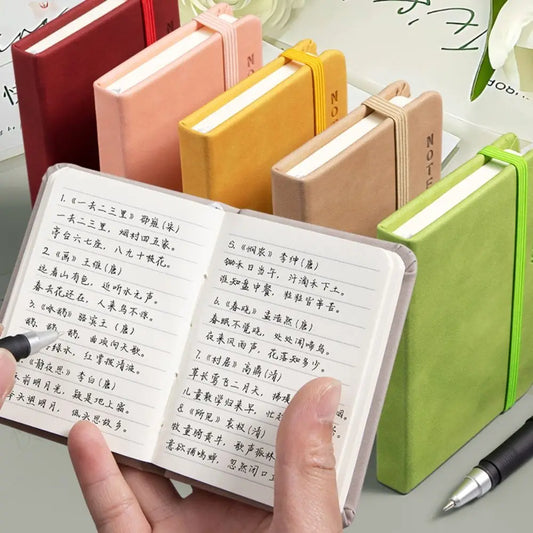 NOTE
NOTE
NOTE
1.《一去二三里》邵雍(宋)
一去二三里，烟村四五家。
亭台六七座，八九十枝花。
2.《画》王维(唐)
远看山有色，近听水无声。
春去花还在，人来鸟不惊。
3.《咏鹅》骆宾王(唐)
鹅，鹅，鹅，曲项向天歌。
绿水，红掌拨清波。
《静夜思》李白(唐)
床前明月光，疑是地上霜。
头望明月，低头思故乡。
5.《悯农》李绅(唐)
锄禾日当午，汗滴禾下土。
谁知盘中餐，粒粒皆辛苦。
6.《春晓》孟浩然(唐)
春眠不觉晓，处处闻啼鸟。
夜来风雨声，花落知多少。
7.《村居》高鼎(清)
草长莺飞二月天，拂堤
儿童散学归来早，忙
8.《所见》袁枚(清)
牧童骑黄牛，歌声振林
意欲捕鸣蝉，忽然闭口